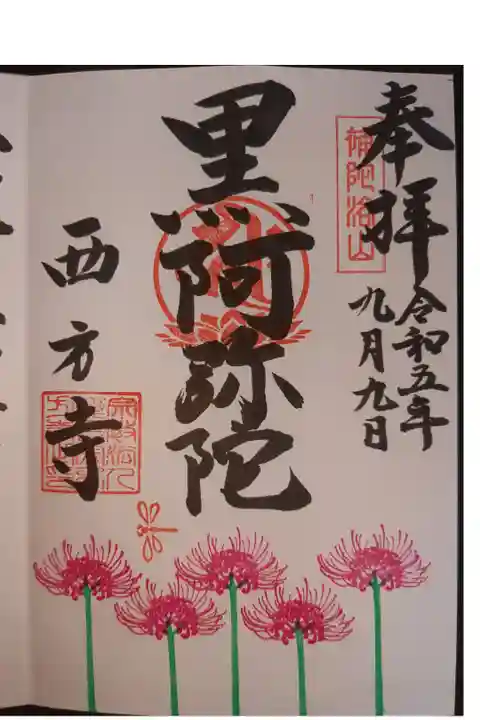 奉拝
補陀洛山
令和五年
九月九日
黒阿弥陀
西方寺